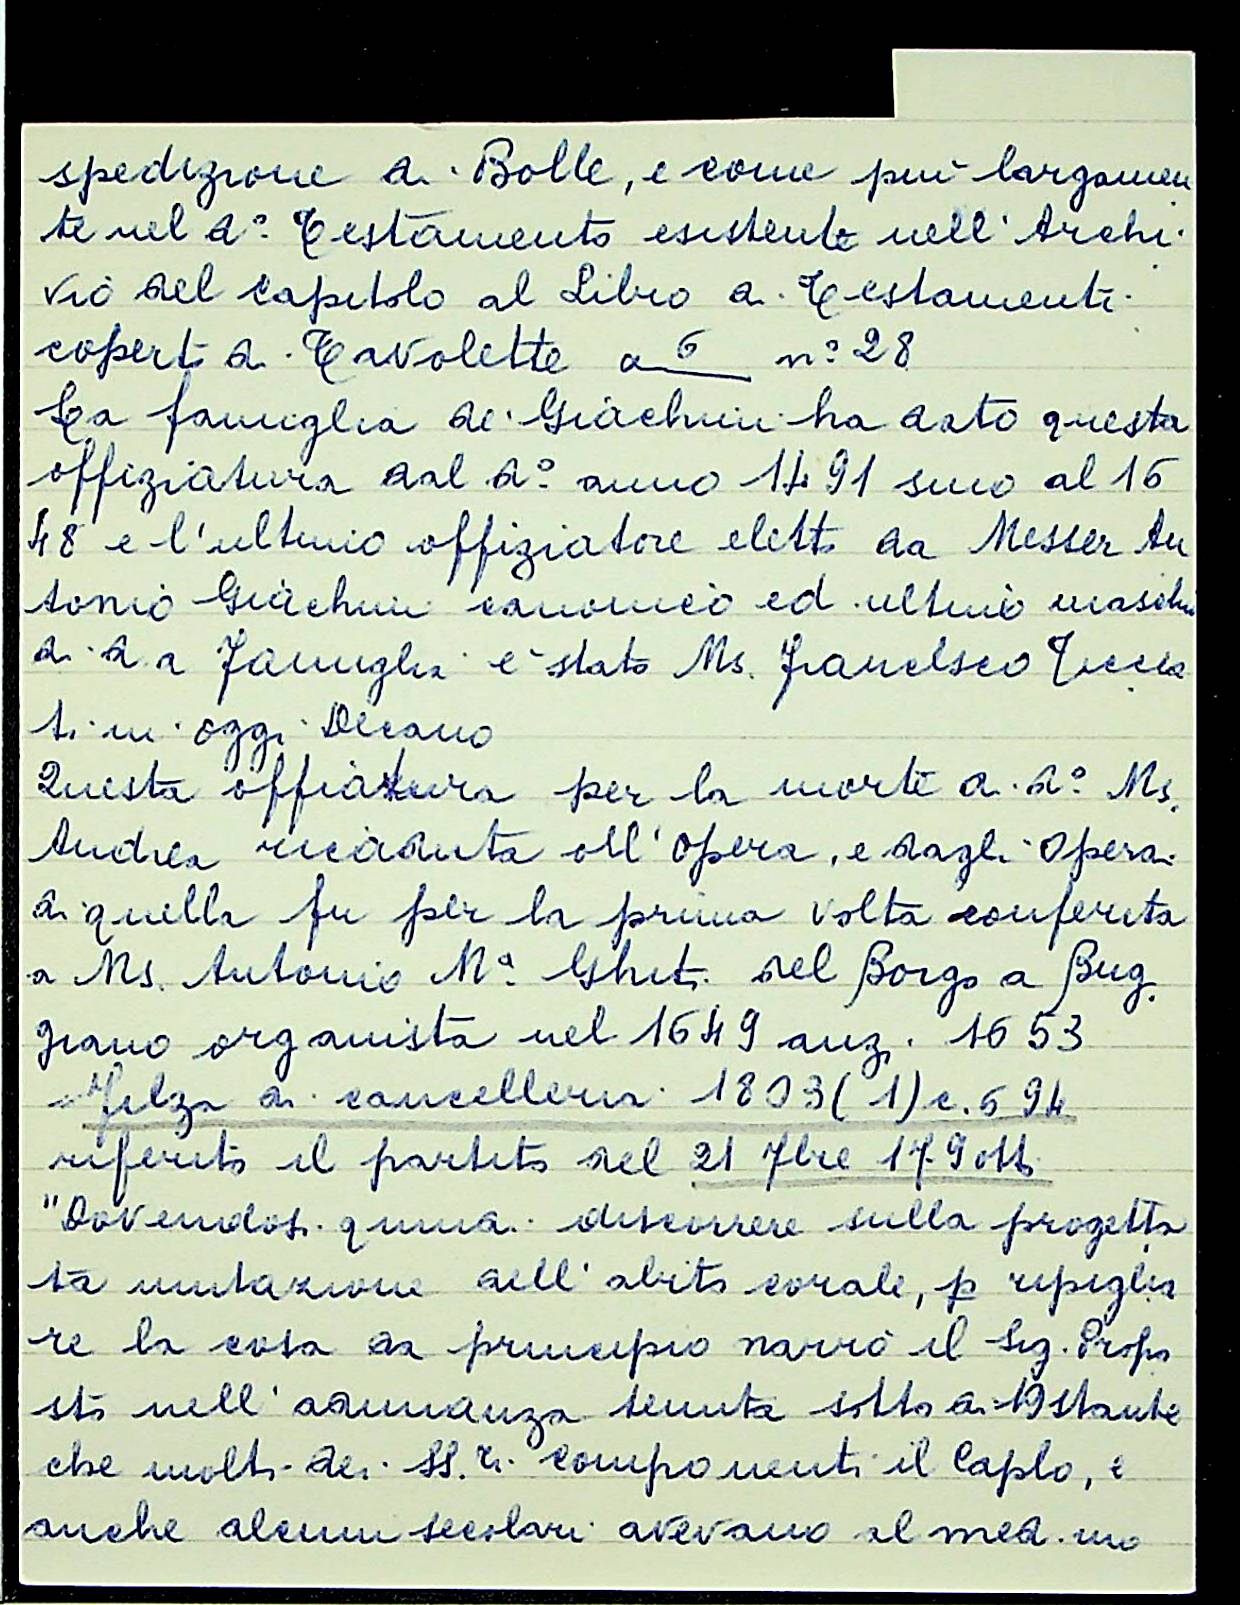 spedizione di Bolle, e come più largamen
te nel d.º Testamento esistente nell'Archi
vio del capitolo al Libro di Testamenti
coperti di Tavolette a 6 n.º 28
La famiglia de' Giachini ha dato questa
offiziatura dal d.º anno 1491 sino al 16
48 e l'ultimo offiziatore eletto da Messer An
tonio Giachini canonico ed ultimo maschio
di d.a Famiglia è stato Ms. Francesco
ti in oggi Decano
Questa offiatura per la morte di d.º Ms.
Andrea ricaduta all'Opera, e dagli Operai
di quella fu per la prima volta conferita
a Ms. Antonio M.ª Gheti del Borgo a Bug
giano organista nel 1649 anz. 1653
Filza di cancelleria 1803 (1) c. 694
riferito il partito del 21 7bre 179
"Dovendosi quindi discorrere sulla progetta
ta mutazione dell'abito corale, p ripiglia
re la cosa da principio narrò il Sig. Propo
sto nell'adunanza tenuta sotto di 19 stante
che molti dei SS.ri componenti il Caplo, e
anche alcuni secolari avevano al med.mo